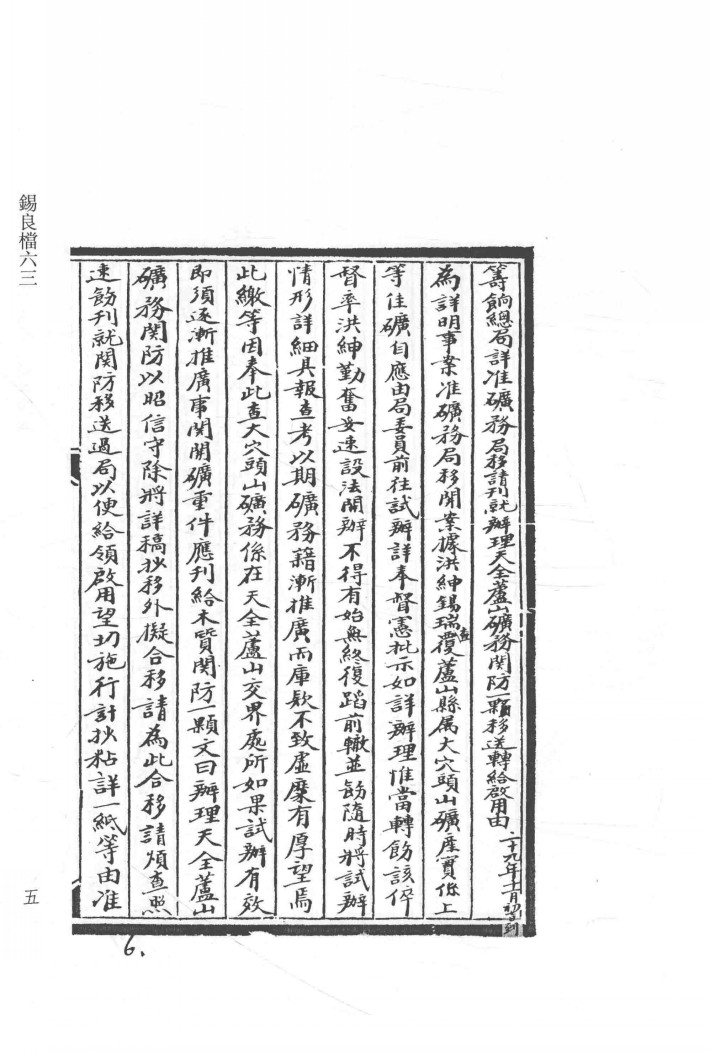 籌餉總局詳准礦務局移請刊就辦理天全蘆山礦務関防一顆移送轉給啟用由 二十九年十一月初 到
為詳明事案准礦務局移開案據洪紳錫瑞查覆蘆山縣屬大穴頭山礦產實係上
等佳礦自應由局委員前往試辦詳奉督憲批示如詳辦理惟當轉飭該倅
督率洪紳勤奮妥速設法開辦不得有始無終復蹈前轍並飭隨時將試辦
情形詳細具報查考以期礦務藉漸推廣而庫欵不致虛糜有厚望焉
此繳等因奉此查大穴頭山礦務係在天全蘆山交界處所如果試辦有效
即須逐漸推廣事関開礦重件應刊給木質関防一顆文曰辦理天全蘆山
礦務関防以昭信守除將詳稿抄移外擬合移請為此合移請煩查照
速飭刊就関防移送過局以便給領啟用望切施行計抄粘詳一紙等由准
錫良檔六三
五
6.